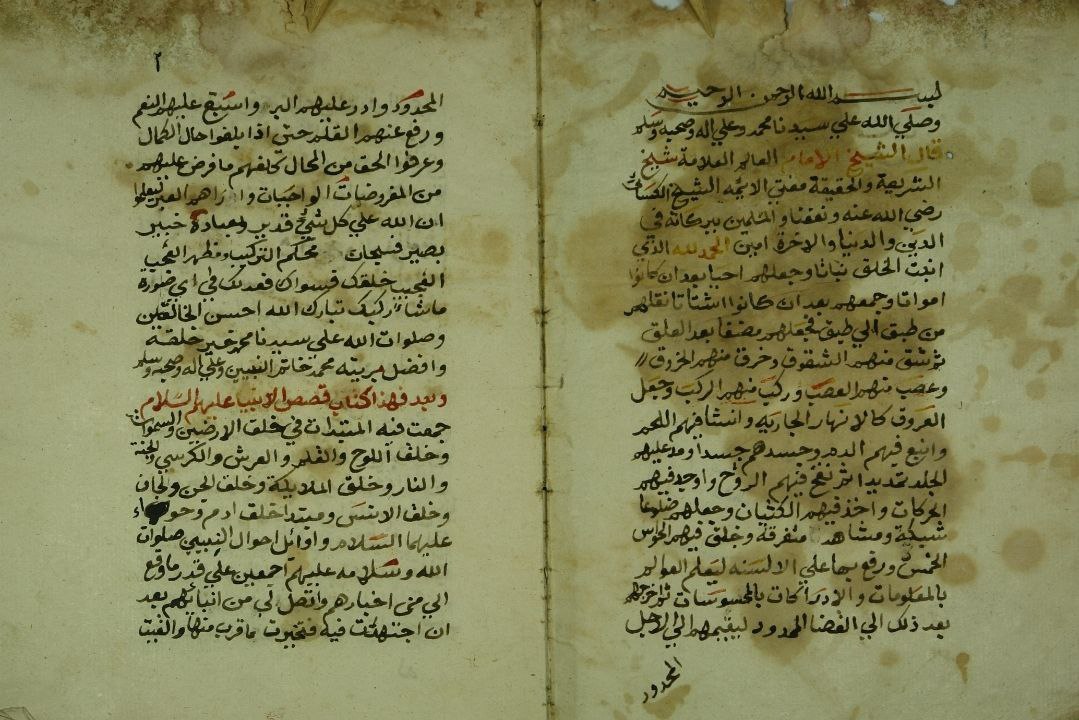 بسم الله الرحمن الرحيم
وصلي الله علي سيدنا محمد وعلي اله وصحبه وسلم
قال الشيخ الإمام العالم العلامة شيخ
الشريعة والحقيقة مفتي الايمه الشيخ الكساي
رضي الله عنه ونفعنا والمسلمين ببركاته في
الدين والدنيا والاخرة امين الحمد لله الذي
انبت الخلق نباتا وجعلهم احيا بعد ان كانوا
امواتا وجمعهم بعد ان كانوا اشتاتا نقلهم
من طبق الي طبق فجعلهم مضغا بعد العلق
ثم شق منهم الشقوق وخرق منهم الخروق
وعصب منهم العصب وركب منهم الركب وجعل
العروق كالانهار الجاريه وانشا فيهم اللحم
وانبع فيهم الدم وجسدهم جسدا ومد عليهم
الجلد تمديدا ثم نفخ فيهم الروح واوجد فيهم
الحركات واخذ فيهم وجعلهم
ومشاهد متفرقة وخلق فيهم الحواس
الخمس ورفع بها علي الالسنه ليعلم العوالم
بالمعلومات والادراكات بالمحسوسات ثم اخرجهم
بعد ذلك الي الفضا المحدود ليقيمهم الي الاجل
المحدود
٢
المحدود وادر عليهم البر واسبغ عليهم النعم
ورفع عنهم القلم حتي اذا بلغوا حال الكمال
وعرفوا الحق من المحال كلفهم ما فرض عليهم
من المفروضات الواجبات واراهم العبر ليعلموا
ان الله علي كل شيء قدير وبعباده خبير
بصير فسبحان محكم التركيب ومظهر العجب
العجيب خلقك فسواك فعدلك في اي صورة
ما شاء ركبك تبارك الله احسن الخالقين
وصلوات الله علي سيدنا محمد خير خلقه
وافضل بريته محمد خاتم النبيين وعلي اله وصحبه وسلم
وبعد فهذا كتاب قصص الانبيا عليهم السلام
جمعت فيه المبتدات في خلق الارضين والسموات
وخلق اللوح والقلم والعرش والكرسي والجنة
والنار وخلق الملايكة وخلق الجن والجان
وخلق الانس ومبتدا خلق ادم وحواء
عليهما السلام واوائل احوال النبيين صلوات
الله وسلامه عليهم اجمعين علي قدر ما وقع
الي من اخبارهم واتصل لي من انبائهم بعد
ان اجتهدت فيه فتخيرت ما قرب منها والفيت